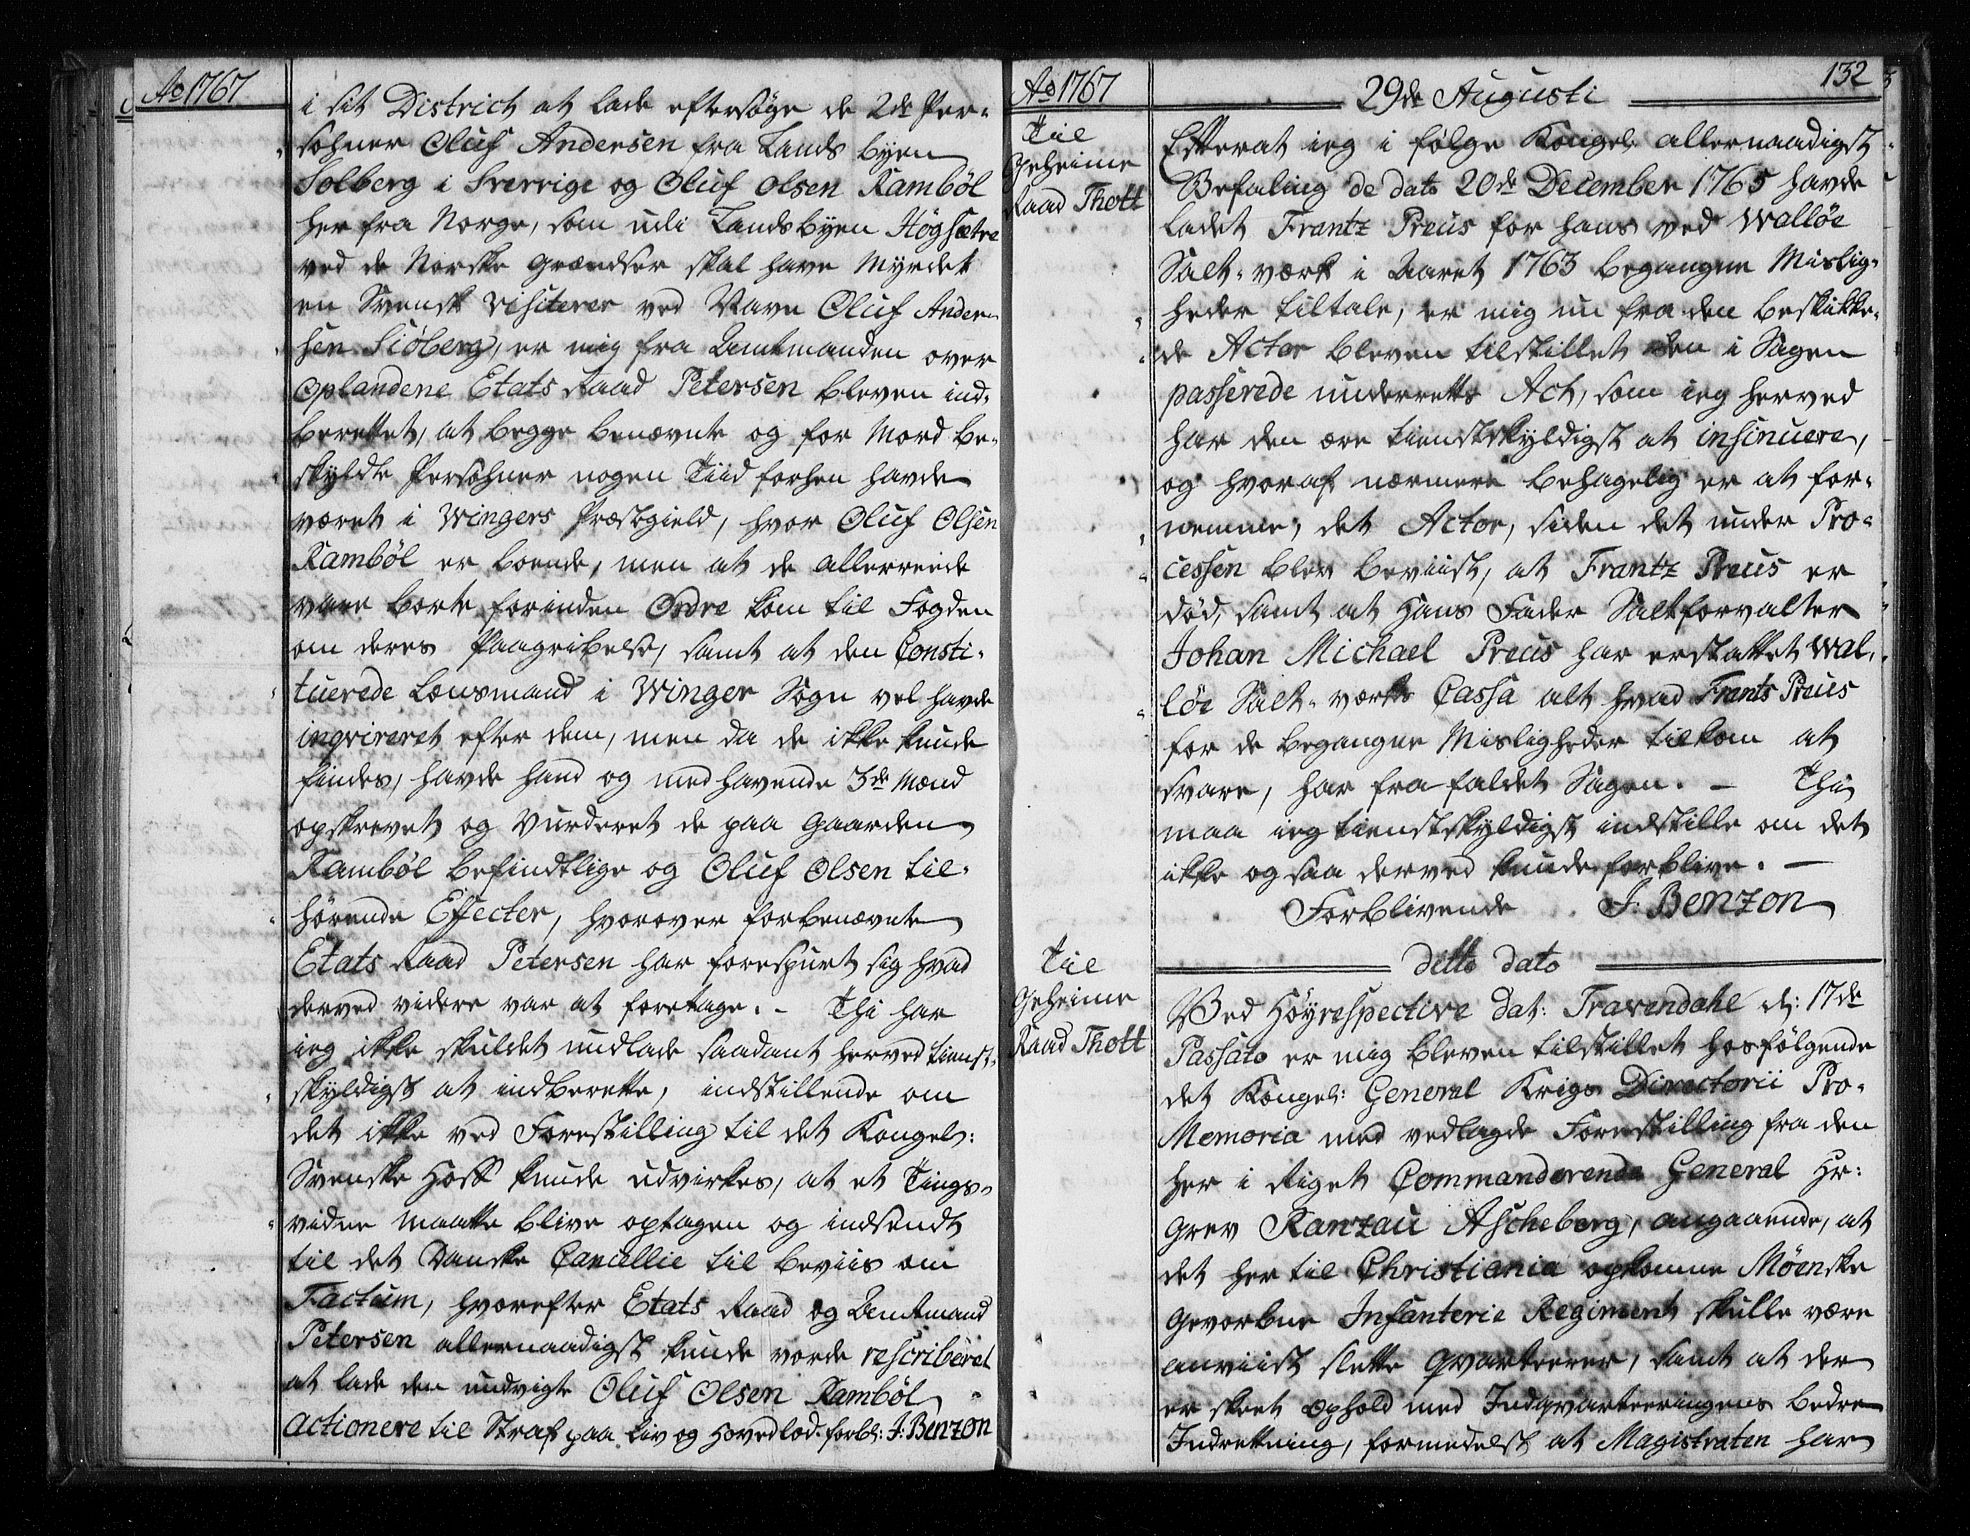 Ao 1767
i sit District at lade eftersøge de 2de Per-
sohner Oluf Andersen fra Lands byen
Solberg i Sverrige og Oluf Olsen Rambøl
her fra Norge, som udi Landsbyen Högsætre
ved de Norske Grændser skal have Myrdet
en Svensk Visiterer ved Navn Oluf Ander-
sen Siöberg, er mig fra Amtmanden over
Oplandene Etats Raad Petersen bleven ind-
berettet, at begge benævnte og for Mord be-
skyldte Persohner nogen Tiid forhen havde
været i Wingers Præstegield, hvor Oluf Olsen
Rambøl er boende, men at de allerreede
vare borte forinden Ordre kom til Fogden
om deres Paagribelse, samt at den Consti-
tuerede Lænsmand i Winger Sogn vel havde
inqvireret efter dem, men da de ikke kunde
findes, havde hand og medhavende 3de Mænd
opskrevet og Vurderet de paa Gaarden
Rambøl befindtlige og Oluf Olsen til-
hørende Effecter, hvorover forbenævnte
Etats Raad Petersen har forespurt sig hvad
derved videre var at foretage. - Thi har
ieg ikke skuldet undlade saadant herved tienst-
skyldigst at indberette, indstillende om
det ikke ved Forestilling til det Kongel:
Svenske Hoff kunde udvirkes, at et Tings-
vidne maatte blive optagen og indsendt
til det Danske Cancellie til beviis om
Factum, hvorefter Etats Raad og Amtmand
Petersen allernaadigst kunde vorde rescriberet
at lade den undvigte Oluf Olsen Rambøl
actionere til Straf paa Liv og Hovedlod. forbl: J: Benzon
Ao 1767
29de Augusti
132
Til
Geheime
Raad Thott
Efterat ieg i følge Kongel: allernaadigst
Befaling de dato 20de December 1765 havde
ladet Frantz Preus for hans ved Walløe
Salt-værk i Aaret 1763 begangne Mislig-
heder tiltale, er mig nu fra den beskikke-
de Actor bleven tilstillet den i Sagen
passerede underretts Act, som ieg herved
har den ære tienstskyldigst at insinuere,
og hvoraf nærmere behagelig er at for-
nemme, det Actor, siden det under Pro-
cessen blev beviist, at Frantz Preus er
død, samt at Hans Fader Saltforvalter
Johan Michael Preus har erstattet Wal-
løe Salt-værks Cassa alt hvad Frants Preus
for de begangne Misligheder tilkom at
svare, har frafaldet Sagen. - Thi
maa ieg tienstskyldigst indstille om det
ikke ogsaa derved kunde forblive. -
Forblivende J: Benzon
ditto dato
Til
Geheime
Raad Thott
Ved Höyrespective Dat: Travendahl d: 17de
Passato er mig bleven tilstillet hosfølgende
det Kongel: General Krigs Directorii Pro-
Memoria med vedlagde Forestilling fra den
her i Riget Commanderende General Hr:
Grev Ranzau Ascheberg, angaaende, at
det her til Christiania opkomne Møenske
Gevorbne Infanterie Regiment skulle være
anviist slette Qvarteerer, samt at der
er skeet Ophold med Indqvarteeringens bedre
Indrettning, formedelst at Magistraten har